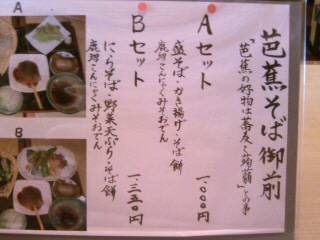 芭蕉そば御前
「芭蕉の好物は蕎麦と蒟蒻」との事
Aセット 一、〇〇〇円
盛そば・かき揚げ・そば餅
鹿狸こんにゃくみそおでん
Bセット 一、三五〇円
にらそば・野菜天ぷら・そば餅
鹿狸こんにゃくみそおでん
A
B